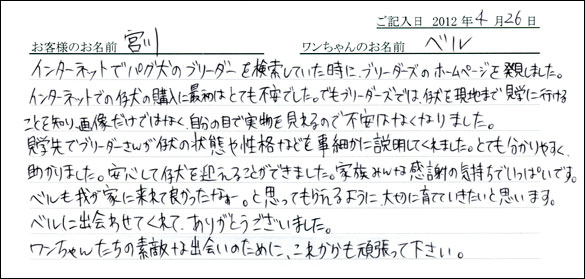 ご記入日 2012年4月26日
お客様のお名前 宮川 ワンちゃんのお名前 ベル
インターネットでパグ犬のブリーダーを検索していた時に、ブリーダーズのホームページを発見しました。
インターネットでの仔犬の購入に最初はとても不安でした。でもブリーダーズでは、仔犬を現地まで見学に行ける
ことを知り、画像だけではなく、自分の目で実物を見れるので不安はなくなりました。
見学先でブリーダーさんが仔犬の状態や性格などを事細かに説明してくれました。とても分かりやすく、
助かりました。安心して仔犬を迎えることができました。家族みんな感謝の気持ちでいっぱいです。
ベルも我が家に来れて良かったなー。と思ってもらえるように大切に育てていきたいと思います。
ベルに出会わせてくれて、ありがとうございました。
ワンちゃんたちの素敵な出会いのために、これからも頑張って下さい。